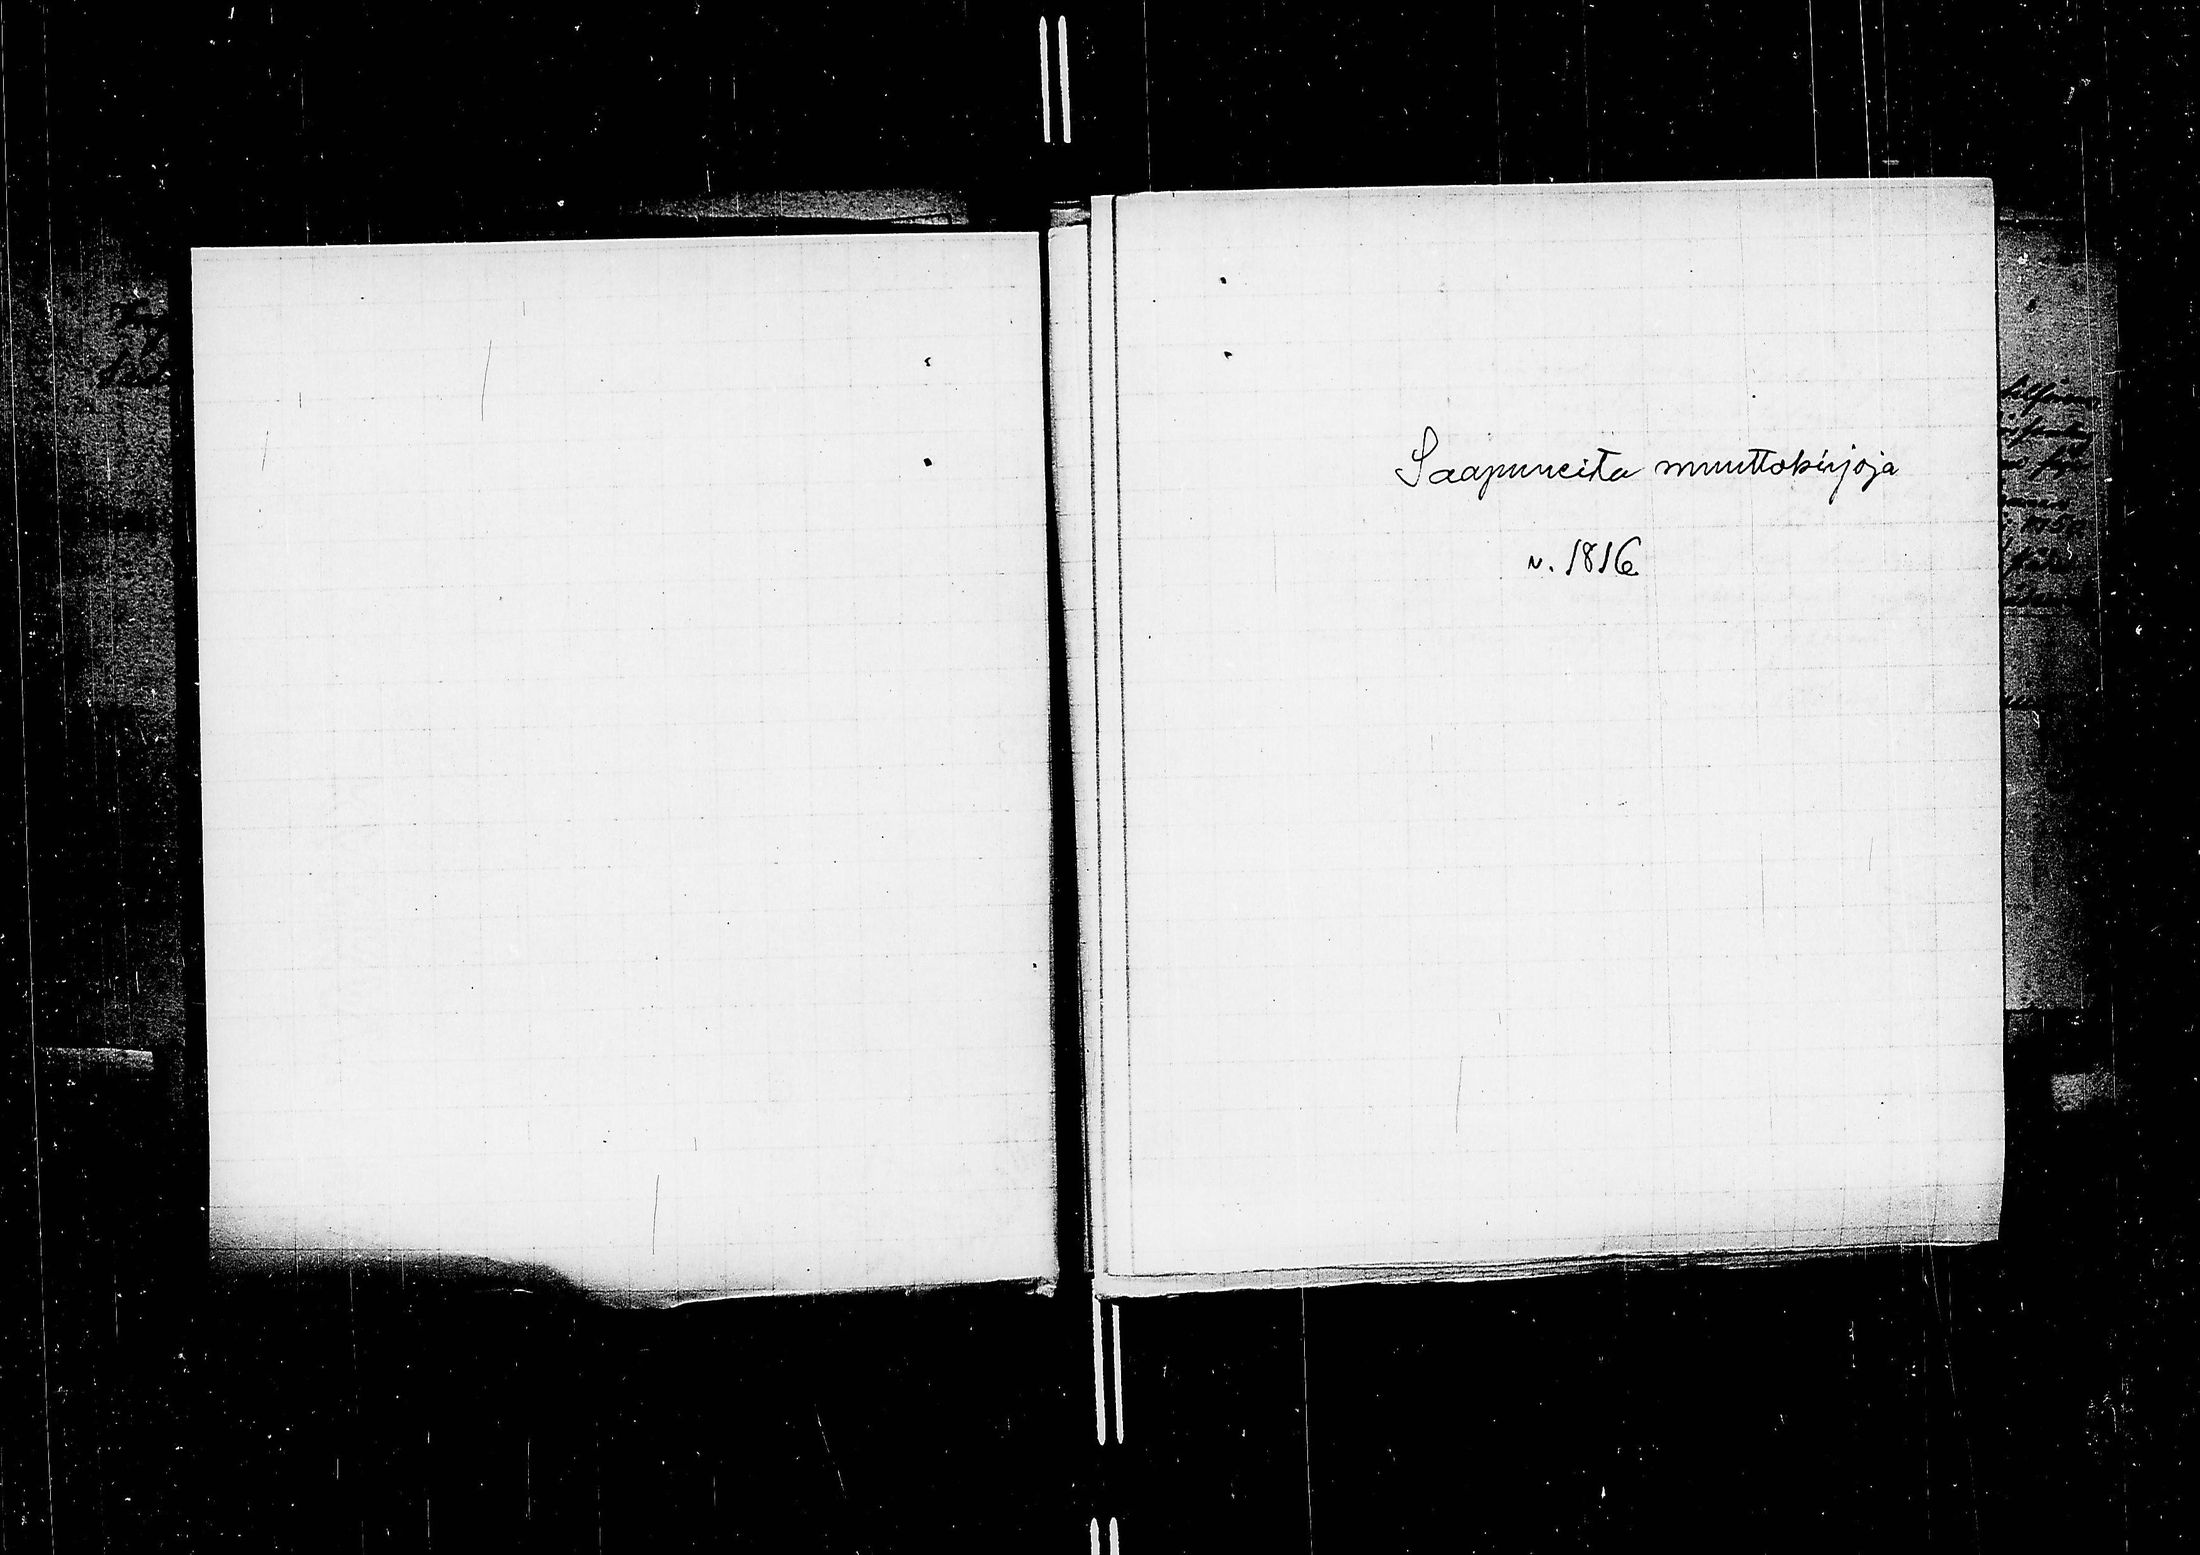 Saapuneita muuttokirjoja
v. 1816